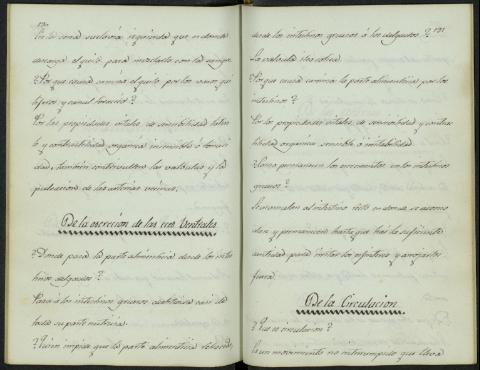 130
En la vena subclavia izquierda que es donde
descarga el quilo para mezclarlo con la sangre
¿Por que causa camina el quilo por los vasos qui
líferos y canal toracico?
Por las propiedades vitales de sensibilidad laten
te y contractilidad organica insensible ó tonici
dad, tambien contribuyen las valvulas y la
pulsacion de las arterias vecinas.
De la escrecion de las eces Ventrales
¿Donde pasa la parte alimenticia desde los intes
tinos delgados?
Pasa á los intestinos gruesos destituida casi de
toda su parte nutricia.
¿Quien impide que la parte alimenticia retroceda
131
desde los intestinos gruesos á los delgados?
La valvula ileo colica.
¿Por que causa camina la parte alimenticia por los
intestinos?
Por las propiedades vitales de sensibilidad y contrac
tilidad organica sensible ó irritabilidad.
¿Como permanecen los escrementos en los intestinos
gruesos?
Se acumulan al intestino recto en donde se acomo
dan y permanecen hasta que hay la suficiente
cantidad para irritar los esfinteres y arrojarlos
fuera.
De la Circulacion.
¿Que es circulacion?
Es un movimiento no interrumpido que lleva